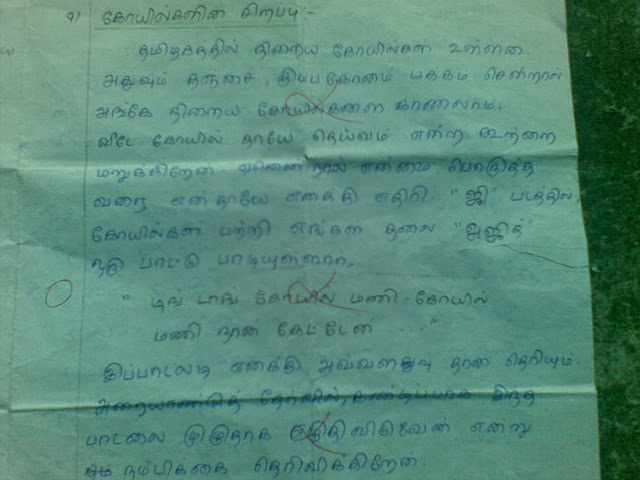 9) கோயில்களின் சிறப்பு :-
தமிழகத்தில் நிறைய கோயில்கள் உள்ளன.
அதுவும் தஞ்சை, கும்பகோணம் பக்கம் சென்றால்
அங்கே நிறைய கோயில்களை காணலாம்.
வீடே கோயில் தாயே தெய்வம் என்ற கூற்றை
மறுக்கிறேன். ஏனென்றால் என்னை பொறுத்த
வரை என் தாயே எனக்கு எதிரி. "ஜி" படத்தில்,
கோயில்கள் பற்றி எங்கள் தலை "அஜித்"
ஒரு பாட்டு பாடியுள்ளார்.
" டிங் டாங் கோயில் மணி - கோயில்
மணி நான் கேட்டேன் ..."
இப்பாடலடி எனக்கு அவ்வளவு தான் தெரியும்.
அரையாண்டுத் தேர்வில், கண்டிப்பாக இந்த
பாடலை முழுதாக எழுதிவிடுவேன் என்று
நம்பிக்கை தெரிவிக்கிறேன்.